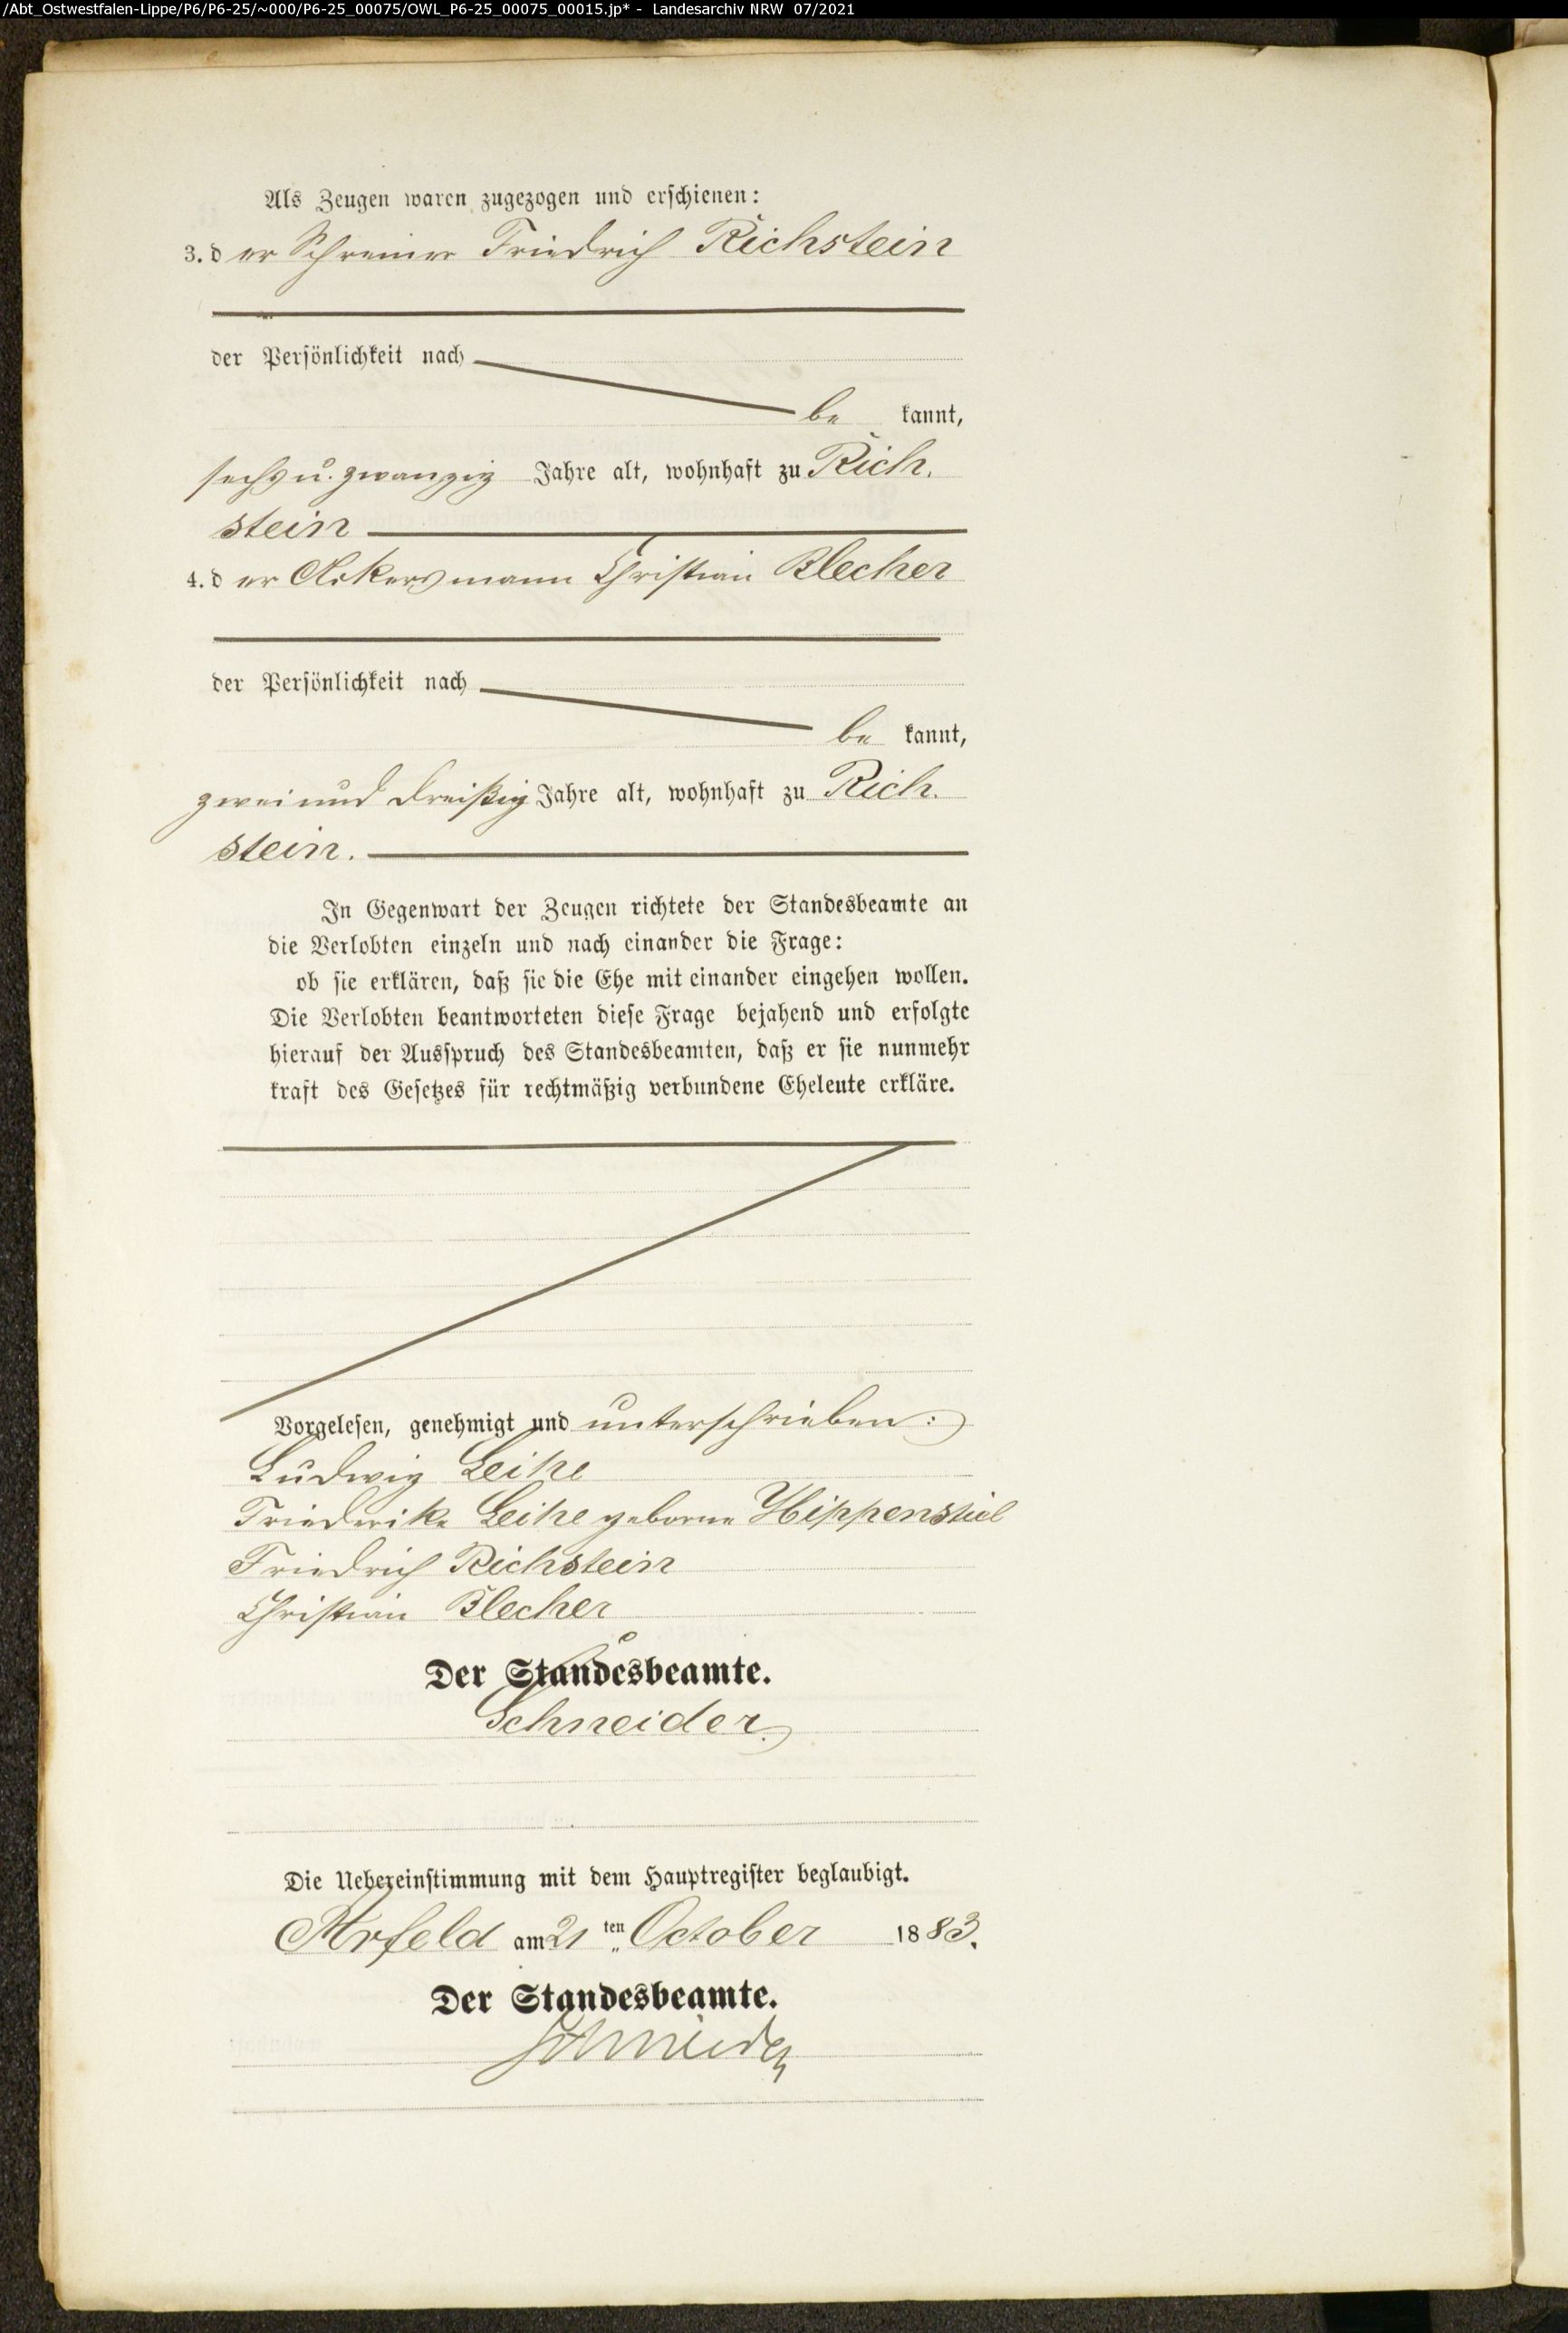 /Abt_Ostwestfalen-Lippe/P6/P6-25/~000/P6-25_00075/OWL_P6-25_00075_00015.jp* - Landesarchiv NRW 07/2021
Als Zeugen waren zugezogen und erschienen:
3. der Schreiner Friedrich Richstein
der Persönlichkeit nach
be kannt,
sechs u. zwanzig Jahre alt, wohnhaft zu Rich.
stein
4. der Ackersmann Christian Blecher
der Persönlichkeit nach
be kannt,
zweiund dreißig Jahre alt, wohnhaft zu Rich.
stein.
In Gegenwart der Zeugen richtete der Standesbeamte an
die Verlobten einzeln und nach einander die Frage:
ob sie erklären, daß sie die Ehe mit einander eingehen wollen.
Die Verlobten beantworteten diese Frage bejahend und erfolgte
hierauf der Ausspruch des Standesbeamten, daß er sie nunmehr
kraft des Gesetzes für rechtmäßig verbundene Eheleute erkläre.
Vorgelesen, genehmigt und unterschrieben:
Ludwig Leihe
Friederike Leihe geborne Hippenstiel
Friedrich Richstein
Christian Blecher
Der Standesbeamte.
Schneider.
Die Uebereinstimmung mit dem Hauptregister beglaubigt.
Arfeld am 21 ten October 1883.
Der Standesbeamte.
Schneider